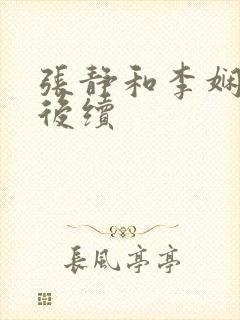 張靜和李嫻
後續
長風亭亭